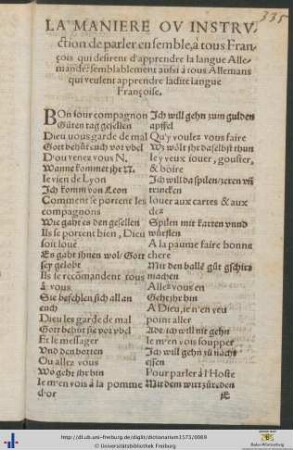 335
LA MANIERE OV INSTRV-
ction de parler ensemble, à tous Fran-
çois qui desirent d'apprendre la langue Alle-
mande: semblablement aussi à tous Allemans
qui veulent apprendre ladite langue
Françoise.
BOn iour compagnon
Güten tag gesellen
Dieu vous garde de mal
Gott behüt euch vor vbel
D'ou venez vous N.
Wannē kommet ihr N.
Ie vien de Lyon
Ich komm von Leon
Comment se portent les
compagnons
Wie gaht es den gesellen
Ils se portent bien, Dieu
soit loué
Es gaht ihnen wol/ Gott
sey gelobt
Ils se recōmandent tous
à vous
Sie befehlen sich all an
euch
Dieu les garde de mal
Gott behüt sie vor vbel
Et le messager
Vnd den botten
Ou allez vous
Wo geht ihr hin
Ie m'en vois à la pomme
d'or
Ich will gehn zum gulden
apffel
Qu'y voulez vous faire
Wz wölt ihr daselbst thun
Ie y veux iouer, gouster,
& boire
Ich will da spilen/ zeren vñ
trincken
Iouer aux cartes & aux
dez
Spilen mit karten vnnd
würfflen
A la paume faire bonne
chere
Mit den ballē gůt gschirr
machen
Allez vous en
Geht ihr hin
A Dieu, ie n'en veu
point aller
Ade, ich will nit gehn
Ie m'en vois soupper
Ich will gehn zů nacht
essen
Pour parler à l'Hoste
Mit dem wirt zů reden
http://dl.ub.uni-freiburg.de/diglit/dictionarium1573/0069
© Universitätsbibliothek Freiburg
Baden-Württemberg